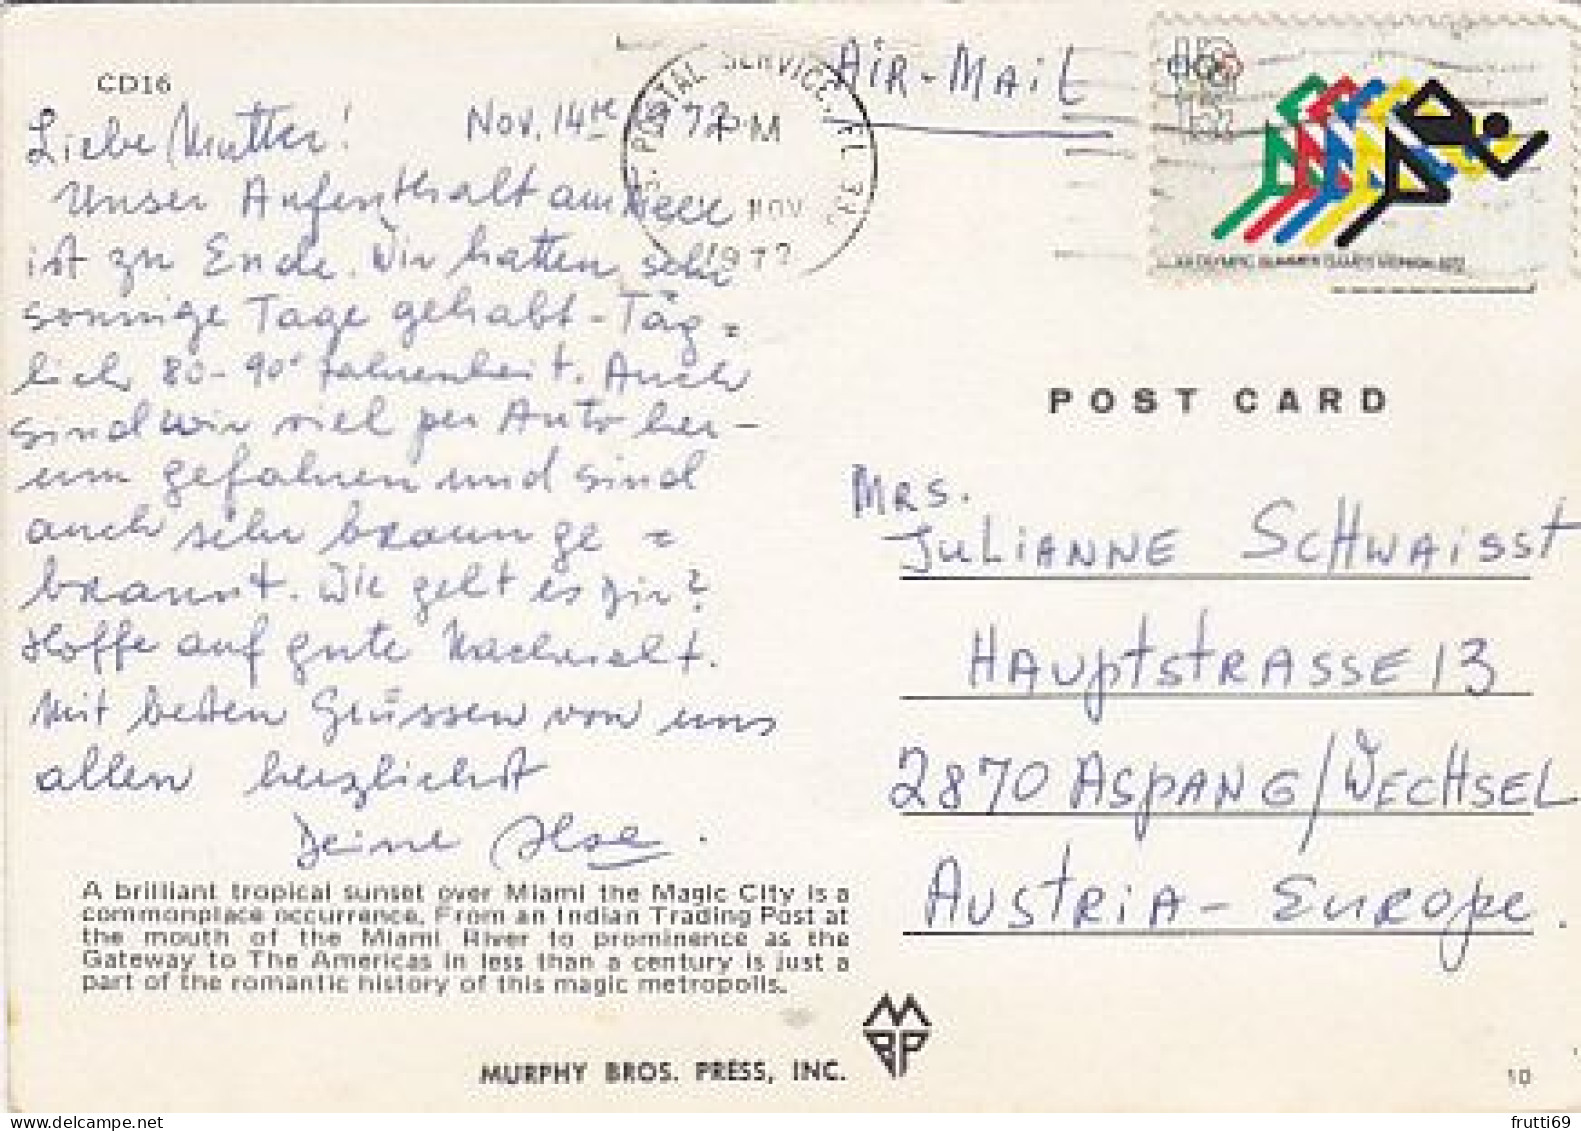 CD16
Liebe Mutter! Nov. 14te 1972
Unser Aufenthalt am Meer
ist zu Ende. Wir hatten sehr
sonnige Tage gehabt - Täg=
lich 80-90° Fahrenheit. Auch
sind wir viel per Auto her-
um gefahren und sind
auch sehr braun ge=
brannt. Wie geht es Dir?
Hoffe auf gute Nachricht.
Mit besten Grüssen von uns
allen herzlichst
Deine Ilse.
A brilliant tropical sunset over Miami the Magic City is a
commonplace occurrence. From an Indian Trading Post at
the mouth of the Miami River to prominence as the
Gateway to The Americas in less than a century is just a
part of the romantic history of this magic metropolis.
MURPHY BROS. PRESS, INC.
MBP
AiR-MAiL
POSTAL SERVICE, FL
PM
NOV
1972
US
15c
XX OLYMPIC SUMMER GAMES MUNICH 1972
POST CARD
MRS.
JULiANNE SCHWAiSST
HAUptstRASSE 13
2870 ASPANG/WECHSEL
AUStRiA - EUROpe.
10
frutti69